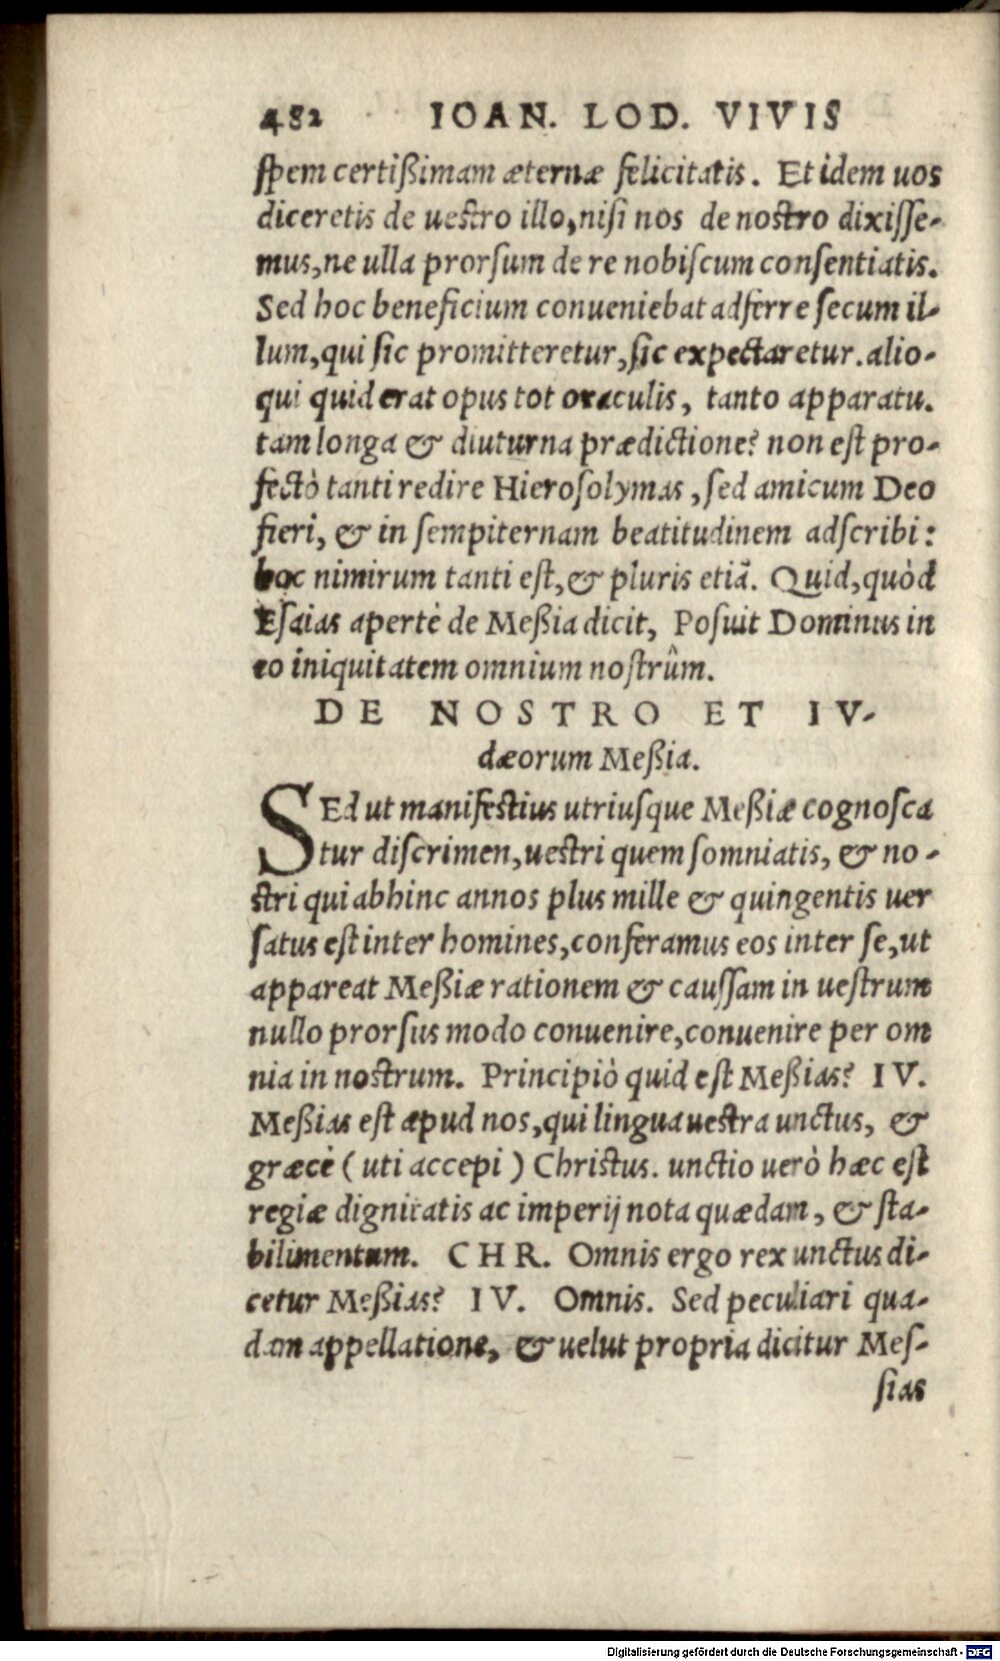 482 IOAN. LOD. VIVIS
ſpem certißimam æternæ felicitatis. Et idem uos
diceretis de ueſtro illo, niſi nos de noſtro dixiſſe-
mus, ne ulla prorſum de re nobiſcum conſentiatis.
Sed hoc beneficium conueniebat adferre ſecum il-
lum, qui ſic promitteretur, ſic expectaretur. alio-
qui quid erat opus tot oraculis, tanto apparatu.
tam longa & diuturna prædictione? non eſt pro-
fectò tanti redire Hieroſolymas, ſed amicum Deo
fieri, & in ſempiternam beatitudinem adſcribi:
hoc nimirum tanti eſt, & pluris etiã. Quid, quòd
Eſaias apertè de Meßia dicit, Poſuit Dominus in
eo iniquitatem omnium noſtrûm.
DE NOSTRO ET IV-
dæorum Meßia.
SEd ut manifeſtius utriuſque Meßiæ cognoſca
tur diſcrimen, ueſtri quem ſomniatis, & no-
ſtri qui abhinc annos plus mille & quingentis uer
ſatus eſt inter homines, conferamus eos inter ſe, ut
appareat Meßiæ rationem & cauſſam in ueſtrum
nullo prorſus modo conuenire, conuenire per om
nia in noſtrum. Principiò quid eſt Meßias? IV.
Meßias eſt apud nos, qui lingua ueſtra unctus, &
græcè (uti accepi) Chriſtus. unctio uerò hæc eſt
regiæ dignitatis ac imperij nota quædam, & ſta-
bilimentum. CHR. Omnis ergo rex unctus di-
cetur Meßias? IV. Omnis. Sed peculiari qua-
dam appellatione, & uelut propria dicitur Meſ-
ſias
Digitalisierung gefördert durch die Deutsche Forschungsgemeinschaft - DFG